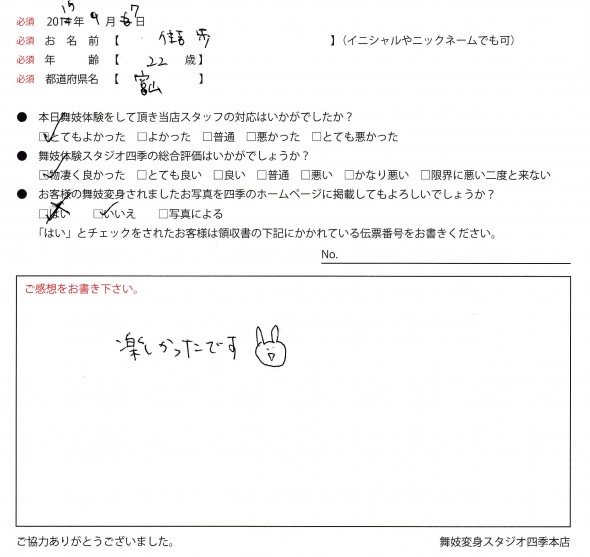 必須 2015年 9月 7日
必須 お名前【 歩 】(イニシャルやニックネームでも可)
必須 年齢【 22 歳】
必須 都道府県名【 富山 】
● 本日舞妓体験をして頂き当店スタッフの対応はいかがでしたか?
☑とてもよかった □よかった □普通 □悪かった □とても悪かった
● 舞妓体験スタジオ四季の総合評価はいかがでしょうか?
☑物凄く良かった □とても良い □良い □普通 □悪い □かなり悪い □限界に悪い二度と来ない
● お客様の舞妓変身されましたお写真を四季のホームページに掲載してもよろしいでしょうか?
□はい ☑いいえ □写真による
「はい」とチェックをされたお客様は領収書の下記にかかれている伝票番号をお書きください。
No.
ご感想をお書き下さい。
楽しかったです
ご協力ありがとうございました。
舞妓変身スタジオ四季本店